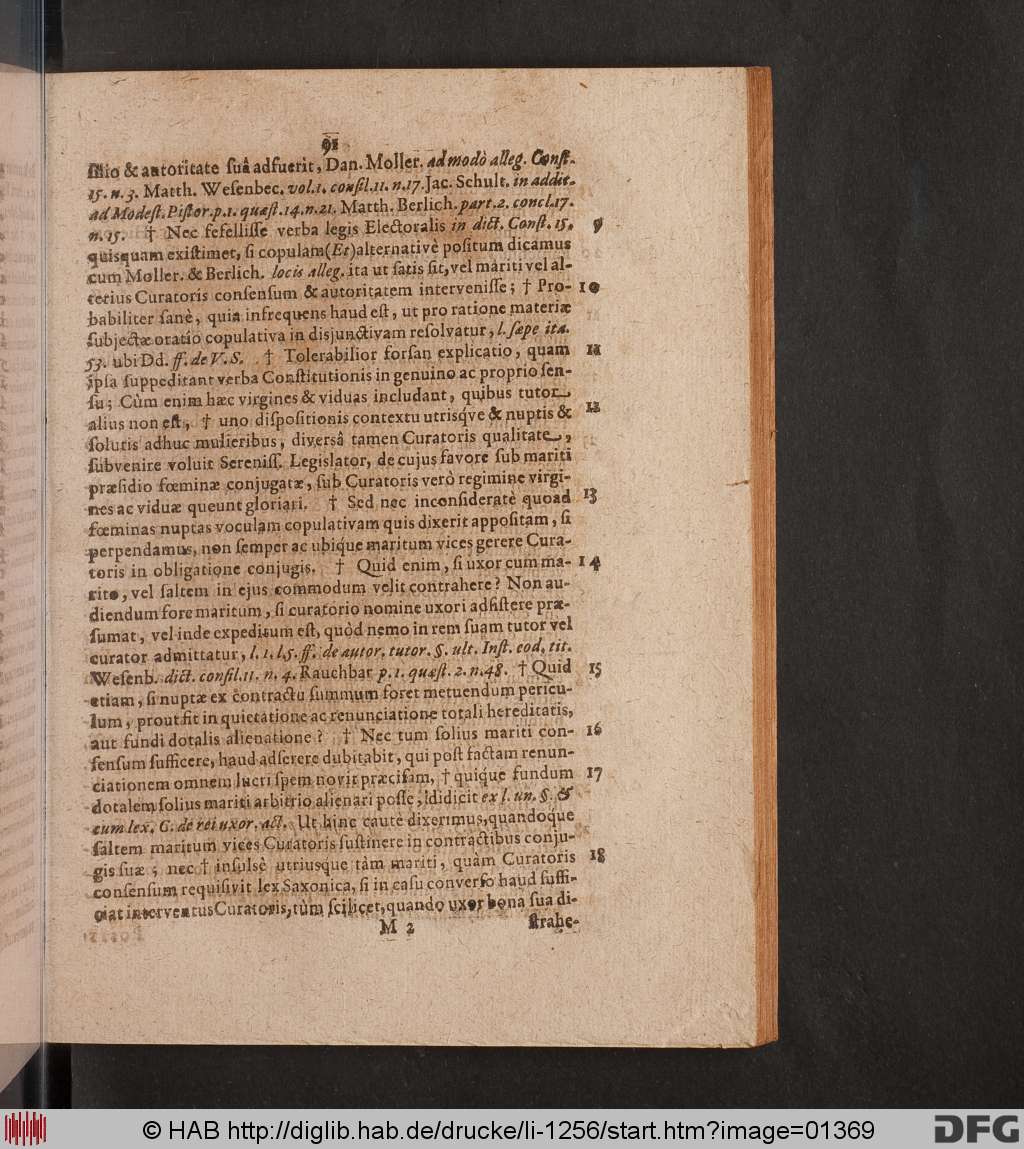 91
silio & autoritate suâ adfuerit, Dan. Moller. ad modò alleg. Const.
15. n. 3. Matth. Wesenbec. vol. 1. consil. 11. n. 17. Jac. Schult. in addit.
ad Modest. Pistor. p. 1. quæst. 14. n. 21. Matth. Berlich. part. 2. concl. 17.
n. 15. † Nec fefellisse verba legis Electoralis in dict. Const. 15. 9
quisquam existimet, si copulam (Et) alternativè positum dicamus
cum Moller. & Berlich. locis alleg. ita ut satis sit, vel mariti vel al-
terius Curatoris consensum & autoritatem intervenisse; † Pro- 10
babiliter sanè, quia infrequens haud est, ut pro ratione materiæ
subjectæ oratio copulativa in disjunctivam resolvatur, l. sæpe ita.
53. ubi Dd. ff. de V. S. † Tolerabilior forsan explicatio, quam 11
ipsa suppeditant verba Constitutionis in genuino ac proprio sen-
su; Cùm enim hæc virgines & viduas includant, quibus tutor
alius non est, † uno dispositionis contextu utrisqve & nuptis & 12
solutis adhuc mulieribus, diversâ tamen Curatoris qualitate,
subvenire voluit Sereniss. Legislator, de cujus favore sub mariti
præsidio fœminæ conjugatæ, sub Curatoris verò regimine virgi-
nes ac viduæ queunt gloriari. † Sed nec inconsideratè quoad 13
fœminas nuptas voculam copulativam quis dixerit appositam, si
perpendamus, non semper ac ubique maritum vices gerere Cura-
toris in obligatione conjugis. † Quid enim, si uxor cum ma- 14
rito, vel saltem in ejus commodum velit contrahere? Non au-
diendum fore maritum, si curatorio nomine uxori adsistere præ-
sumat, vel inde expeditum est, quòd nemo in rem suam tutor vel
curator admittatur, l. 1. l. 5. ff. de autor. tutor. §. ult. Inst. eod. tit.
Wesenb. dict. consil. 11. n. 4. Rauchbar p. 1. quæst. 2. n. 48. † Quid 15
etiam, si nuptæ ex contractu summum foret metuendum pericu-
lum, prout fit in quietatione ac renunciatione totali hereditatis,
aut fundi dotalis alienatione? † Nec tum solius mariti con- 16
sensum sufficere, haud adserere dubitabit, qui post factam renun-
ciationem omnem lucri spem novit præcisam, † quique fundum 17
dotalem solius mariti arbitrio alienari posse, didicit ex l. un. §. &
cum lex. C. de rei uxor. act. Ut hinc cautè dixerimus, quandoque
saltem maritum vices Curatoris sustinere in contractibus conju-
gis suæ; nec † insulsè utriusque tàm mariti, quàm Curatoris 18
consensum requisivit lex Saxonica, si in casu converso haud suffi-
ciat interventus Curatoris, tùm scilicet, quando uxor bona sua di-
M 2 strahe-
© HAB http://diglib.hab.de/drucke/li-1256/start.htm?image=01369
DFG